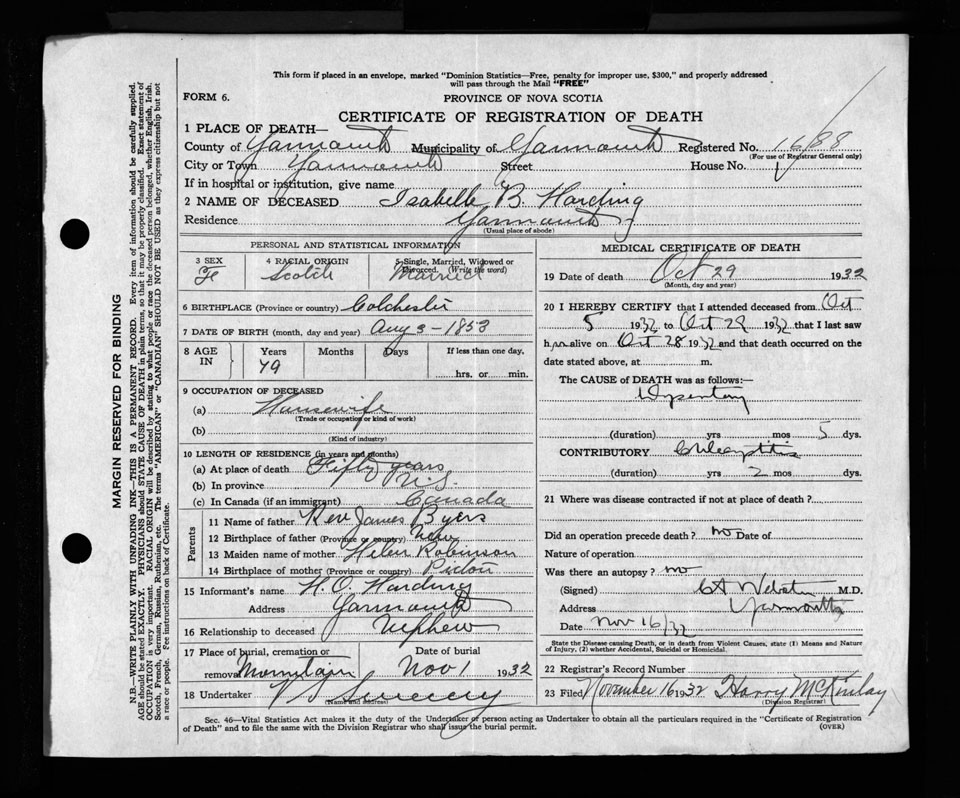 This form if placed in an envelope, marked "Dominion Statistics—Free, penalty for improper use, $300," and properly addressed
will pass through the Mail "FREE"
FORM 6. PROVINCE OF NOVA SCOTIA
CERTIFICATE OF REGISTRATION OF DEATH
1 PLACE OF DEATH—
County of Yarmouth Municipality of Yarmouth Registered No. 16/88
(For use of Registrar General only)
City or Town Yarmouth Street House No.
If in hospital or institution, give name
2 NAME OF DECEASED Isabelle B. Harding
Residence Yarmouth
(Usual place of abode)
PERSONAL AND STATISTICAL INFORMATION
3 SEX 4 RACIAL ORIGIN 5 Single, Married, Widowed or
Divorced. (Write the word)
Fe Scotch Married
6 BIRTHPLACE (Province or country) Colchester
7 DATE OF BIRTH (month, day and year) Aug 3 - 1853
8 AGE IN Years Months Days If less than one day,
79 hrs. or min.
9 OCCUPATION OF DECEASED
(a) Housewife
(Trade or occupation or kind of work)
(b)
(Kind of industry)
10 LENGTH OF RESIDENCE (in years and months)
(a) At place of death Fifty years
(b) In province N.S.
(c) In Canada (if an immigrant) Canada
Parents
11 Name of father Rev James Byers
12 Birthplace of father (Province or country)
13 Maiden name of mother Helen Robinson
14 Birthplace of mother (Province or country) Pictou
15 Informant's name H. O. Harding
Address Yarmouth
16 Relationship to deceased Nephew
17 Place of burial, cremation or Date of burial
removal Mountain Nov 1 1932
18 Undertaker V S Sweeny
(Name and address)
MEDICAL CERTIFICATE OF DEATH
19 Date of death Oct 29 1932
(Month, day and year)
20 I HEREBY CERTIFY that I attended deceased from Oct
5 1932 to Oct 29 1932 that I last saw
h alive on Oct 28 1932 and that death occurred on the
date stated above, at m.
The CAUSE OF DEATH was as follows:—
Dysentery
(duration) yrs mos 5 dys.
CONTRIBUTORY
(duration) yrs 2 mos dys.
21 Where was disease contracted if not at place of death?
Did an operation precede death? no Date of
Nature of operation
Was there an autopsy? no
(Signed) CA Webster M.D.
Address Yarmouth
Date Nov 16/32
State the Disease causing Death, or in death from Violent Causes, state (1) Means and Nature
of Injury, (2) whether Accidental, Suicidal or Homicidal.
22 Registrar's Record Number
23 Filed November 16 1932 Harry McKinlay
(Division Registrar)
Sec. 46—Vital Statistics Act makes it the duty of the Undertaker or person acting as Undertaker to obtain all the particulars required in the "Certificate of Registration
of Death" and to file the same with the Division Registrar who shall issue the burial permit. (OVER)
MARGIN RESERVED FOR BINDING
N.B.—WRITE PLAINLY WITH UNFADING INK—THIS IS A PERMANENT RECORD. Every item of information should be carefully supplied.
AGE should be stated EXACTLY. PHYSICIANS should STATE CAUSE OF DEATH in plain terms, so that it may be properly classified. Exact statement of
OCCUPATION is very important. RACIAL ORIGIN will be described by stating to what people or race the deceased person belonged, whether English, Irish,
Scotch, French, German, Russian, Ruthenian, etc. The terms "AMERICAN" or "CANADIAN" SHOULD NOT BE USED as they express citizenship but not
a race or people. Fee instructions on back of Certificate.